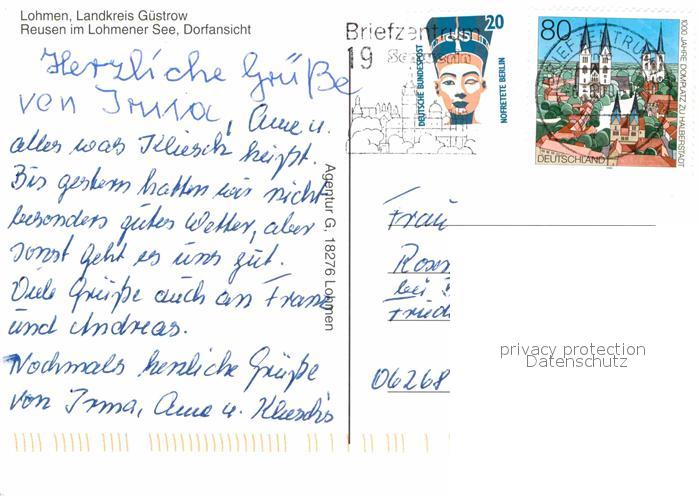 Lohmen, Landkreis Güstrow
Reusen im Lohmener See, Dorfansicht
Herzliche Grüße
von Irma, Anne u.
alles was Kliesch heißt.
Bis gestern hatten wir nicht
besonders gutes Wetter, aber
sonst geht es uns gut.
Viele Grüße auch an Frank
und Andreas.
Nochmals herzliche Grüße
von Irma, Anne u. Klieschs
Agentur G, 18276 Lohmen
Briefzentrum
19
Schwerin
20
DEUTSCHE BUNDESPOST
NOFRETETE BERLIN
80
BRIEFZENTRUM
1000 JAHRE DOMPLATZ ZU HALBERSTADT
DEUTSCHLAND
Frau
Rosen
bei
Fried
06268
privacy protection
Datenschutz